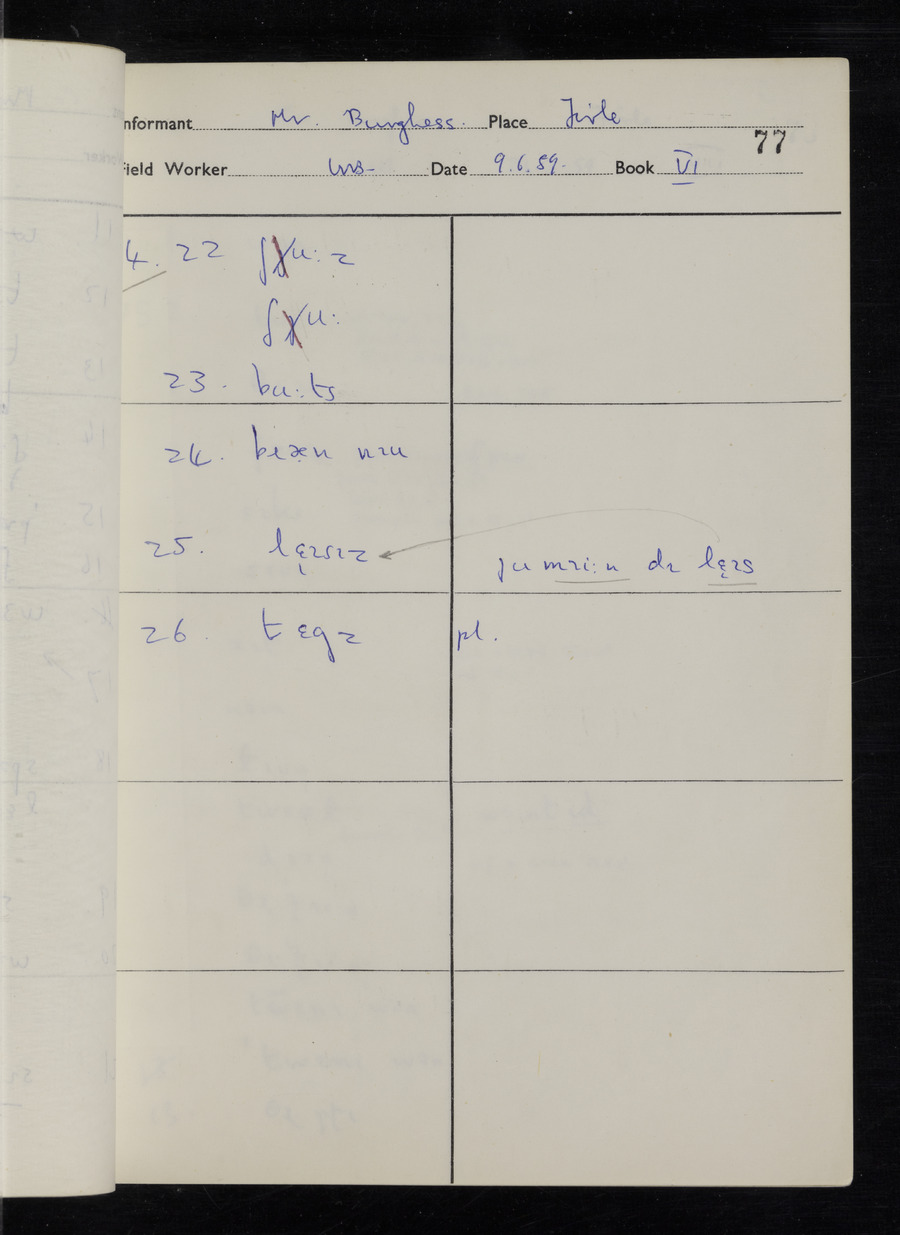 Informant Mr. Burghess. Place Firle
77
Field Worker WB- Date 9.6.59. Book VI
4. 22 ʃɣu:z
ʃɣu:
23. bu:ts
24.
25. lɛ̣ɪsɪz
ju mɪi:n dɪ lɛ̣ɪs
26. tɛgz pl.